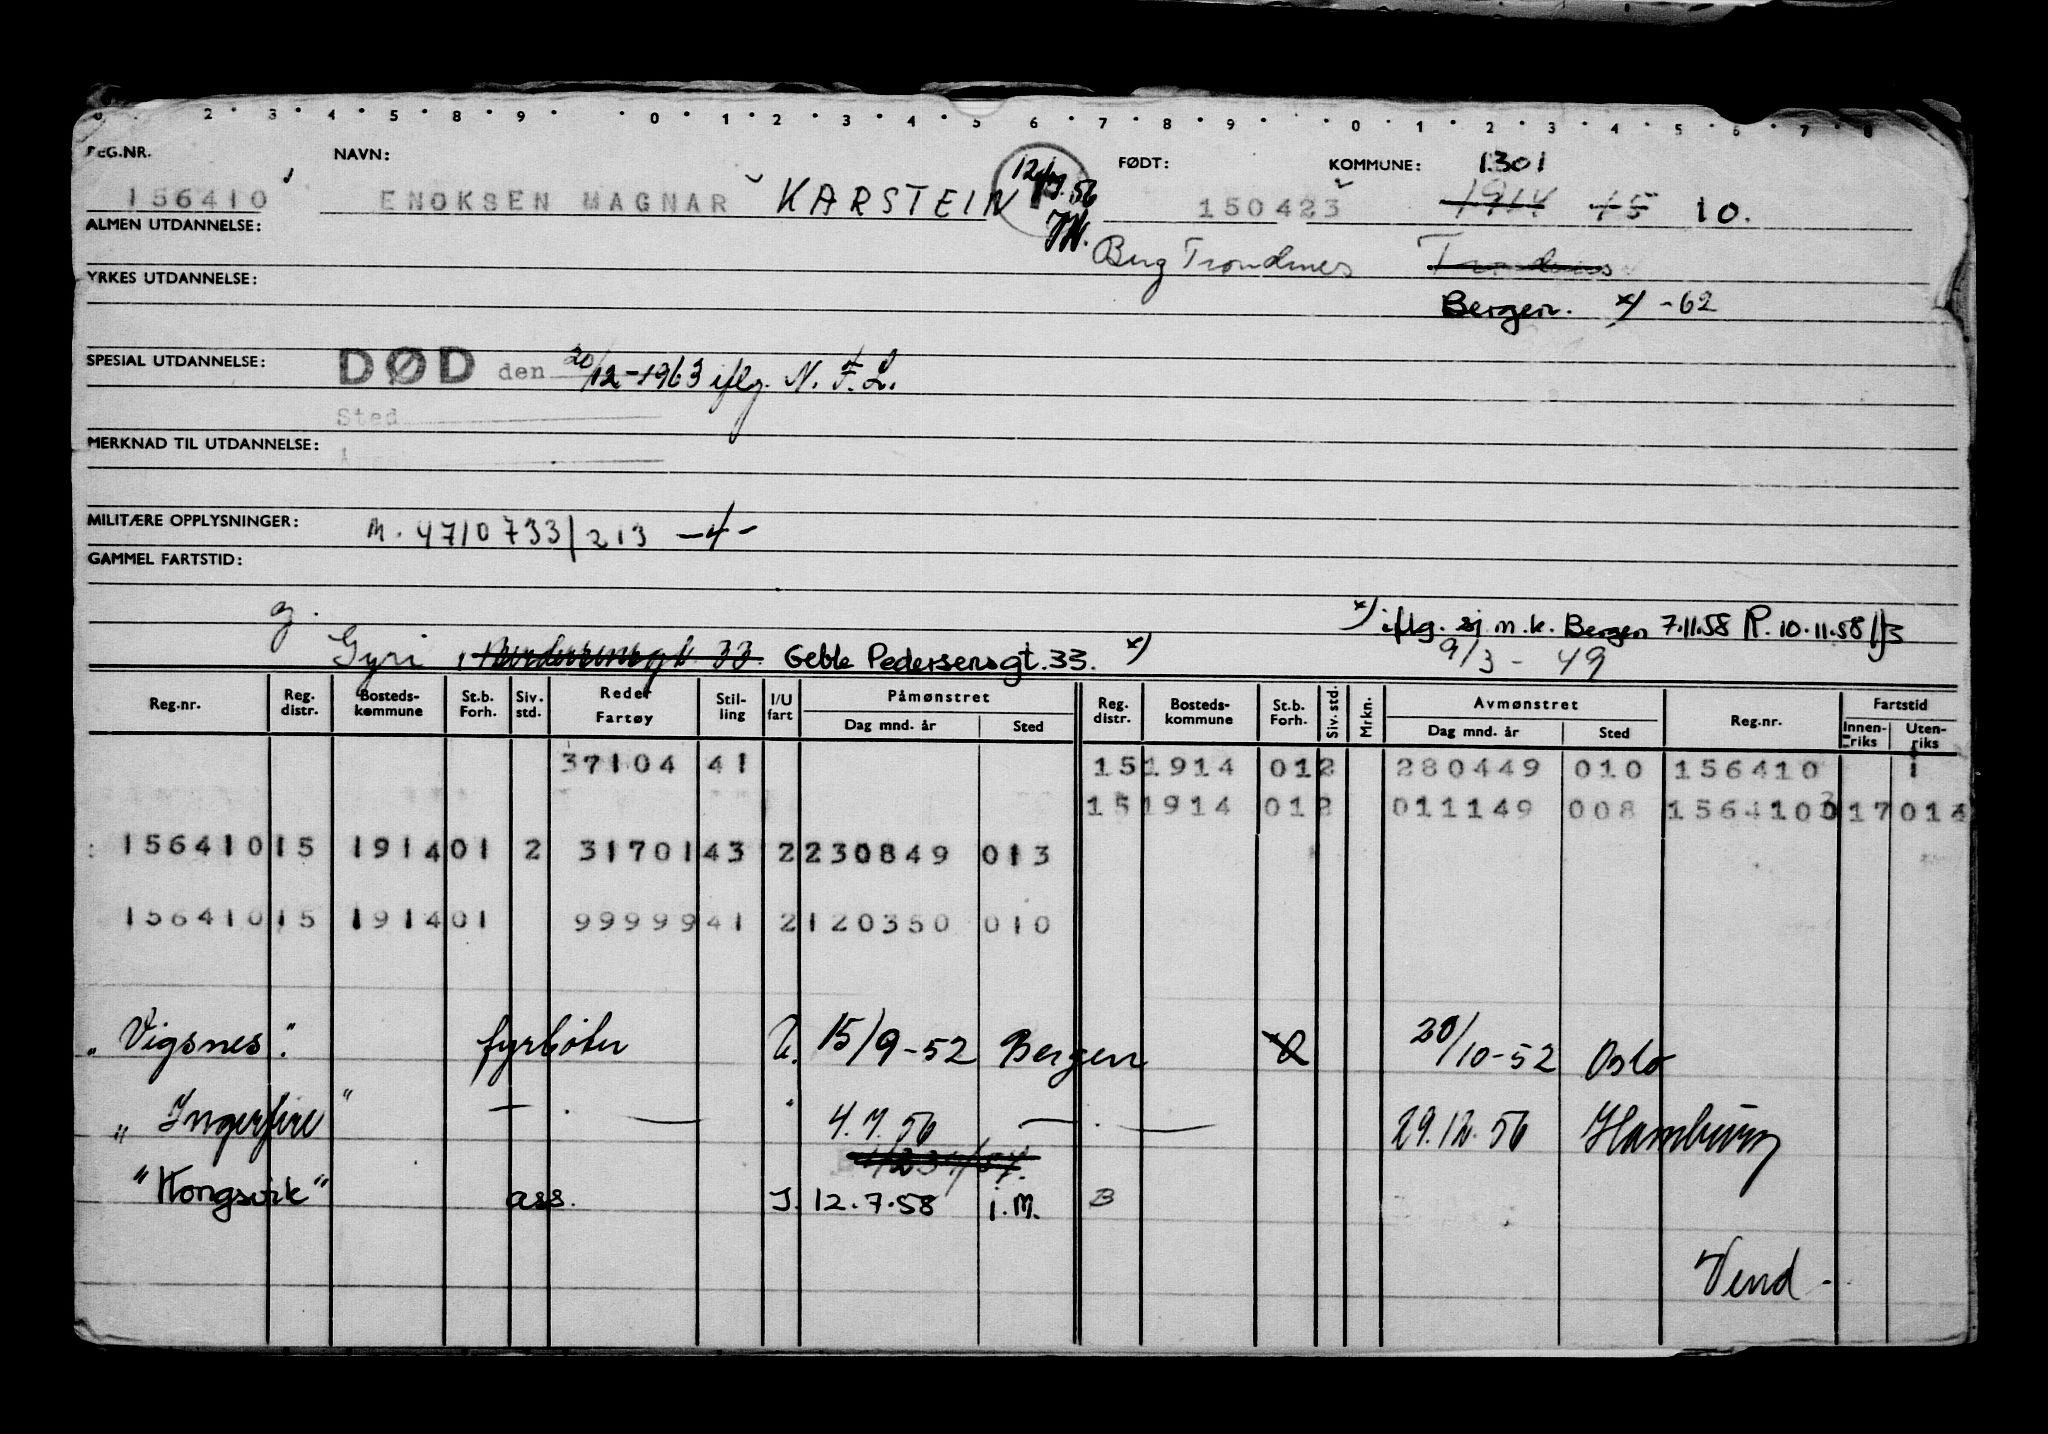 2 3 4 5 8 9 0 1 2 3 4 5 6 7 8 9 0 1 2 3 4 5 6 7 8
REG.NR. NAVN: FØDT: KOMMUNE: 1301
156410 ENOKSEN MAGNAR KARSTEIN 150423 1914 15 10.
ALMEN UTDANNELSE: Berg Trondenes Trondenes
YRKES UTDANNELSE:
Bergen. x) -62
SPESIAL UTDANNELSE: DØD den 20/12-1963 iflg. N.F.L.
Sted
MERKNAD TIL UTDANNELSE:
MILITÆRE OPPLYSNINGER: M. 4710733/213 -4-
GAMMEL FARTSTID:
g. x) iflg. sj m.k. Bergen 7.11.58 R. 10.11.58
Gyri, 33. Geble Pedersensgt. 33. x) 9/3 - 49
Reg.nr. Reg. distr. Bosteds-kommune St.b. Forh. Siv. std. Reder Fartøy Stil-ling I/U fart Påmønstret Dag mnd. år Sted Reg. distr. Bosteds-kommune St.b. Forh. Siv. std. Mrkn. Avmønstret Dag mnd. år Sted Reg.nr. Fartstid Innen-riks Uten-riks
37104 41 15 1914 01 2 280449 010 156410 1
15 1914 01 2 011149 008 156410 0 17 014
156410 15 1914 01 2 31701 43 2 230849 013
156410 15 1914 01 99999 41 2 120350 010
"Vigsnes". fyrbøter U. 15/9-52 Bergen 20/10-52 Oslo
"Ingerfire" — . — " 4.7.56 — . — 29.12.56 Hamburg
"Kongsvik" ass. I. 12.7.58 i.M. B
Vend.